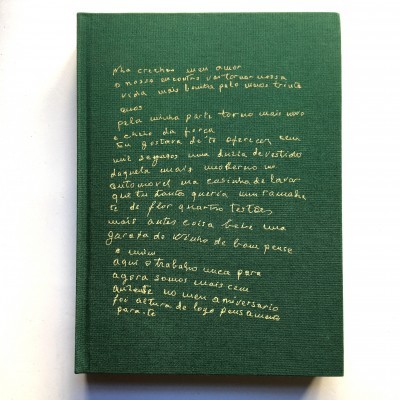 Nha cretcheu meu amor
o nosso encontro vai tornar nossa
vida mais bonita pelo mais trinta
anos
pela minha parte torno mais novo
e cheio da força
Eu gostara de te oferecer cem
mil segaros uma duzia de vestido
daquela mais moderno um
automovel uma casinha de lavar
que tu tanto queria um ramalhe
te de flor quatro tostões
mais antes coisa bebe uma
garafa do vinho de bom pense
e mim
aqui o trabalho nuca para
agora somos mais cem
no meu aniversario
foi altura de logo pensamento
para-te